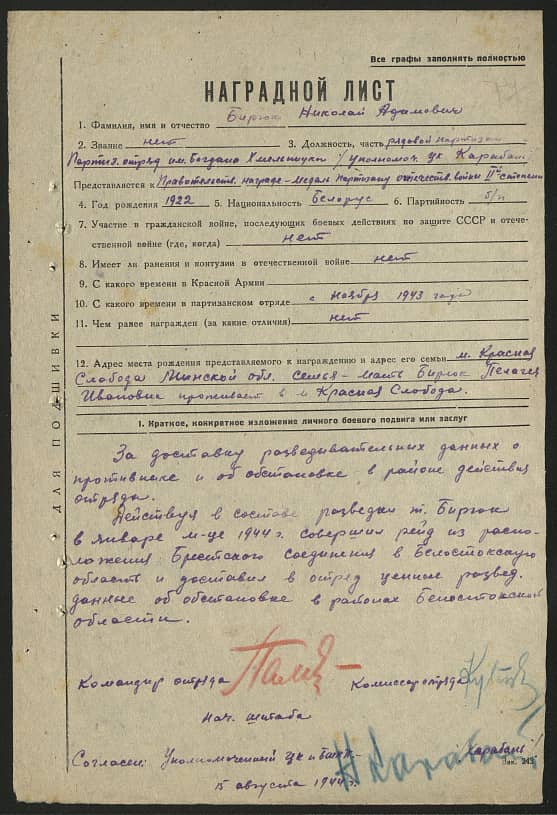 Все графы заполнять полностью
НАГРАДНОЙ ЛИСТ
1. Фамилия, имя и отчество Бирюк Николай Адамович
2. Звание нет 3. Должность, часть рядовой партизан
Партиз. отряд им. Богдана Хмельницкого уполномоч. ЦК Карабань
Представляется к Правительств. награде - медали партизану отечеств. войны II й степени
4. Год рождения 1922 5. Национальность Белорус 6. Партийность б/п
7. Участие в гражданской войне, последующих боевых действиях по защите СССР и отече-
ственной войне (где, когда) нет
8. Имеет ли ранения и контузии в отечественной войне нет
9. С какого времени в Красной Армии
10. С какого времени в партизанском отряде с ноября 1943 года
11. Чем ранее награжден (за какие отличия) нет
12. Адрес места рождения представляемого к награждению и адрес его семьи м. Красная
Слобода Минской обл. Семья - мать Бирюк Пелагея
Ивановна проживает в м Красная Слобода.
I. Краткое, конкретное изложение личного боевого подвига или заслуг
За доставку разведывательных данных о
противнике и об обстановке в районе действия
отряда.
Действуя в составе разведки т. Бирюк
в январе м-це 1944 г. совершил рейд из распо-
ложения Брестского соединения в Белостокскую
область и доставил в отряд ценные развед.
данные об обстановке в районах Белостокской
области.
Командир отряда Комиссар отряда
нач. штаба
Согласен: Уполномоченный ЦК и Карабань
15 августа 1944 г.
Зак. 243
ДЛЯ ПОДШИВКИ